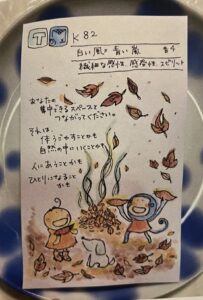 K 82
白い風 青い嵐 #4
繊細な野性、感受性、スピリット
あなたの
集中できるスペースと
つながってください。
それは、
体うごかすことかも
自然の中にいくことかも
人にあうことかも
ひとりになること
かも